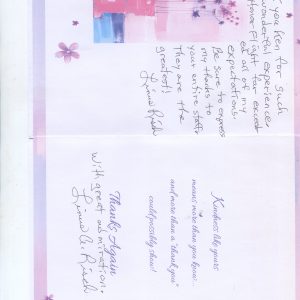 you Ken for such
wonderful experience
flight far exceed
ed all of my
expectations.
Be sure to express
my thanks to
your entire staff.
They are the
greatest!
Kindness like yours
means more than you know...
and more than a "thank you"
could possibly show!
Thanks Again
With great admiration,